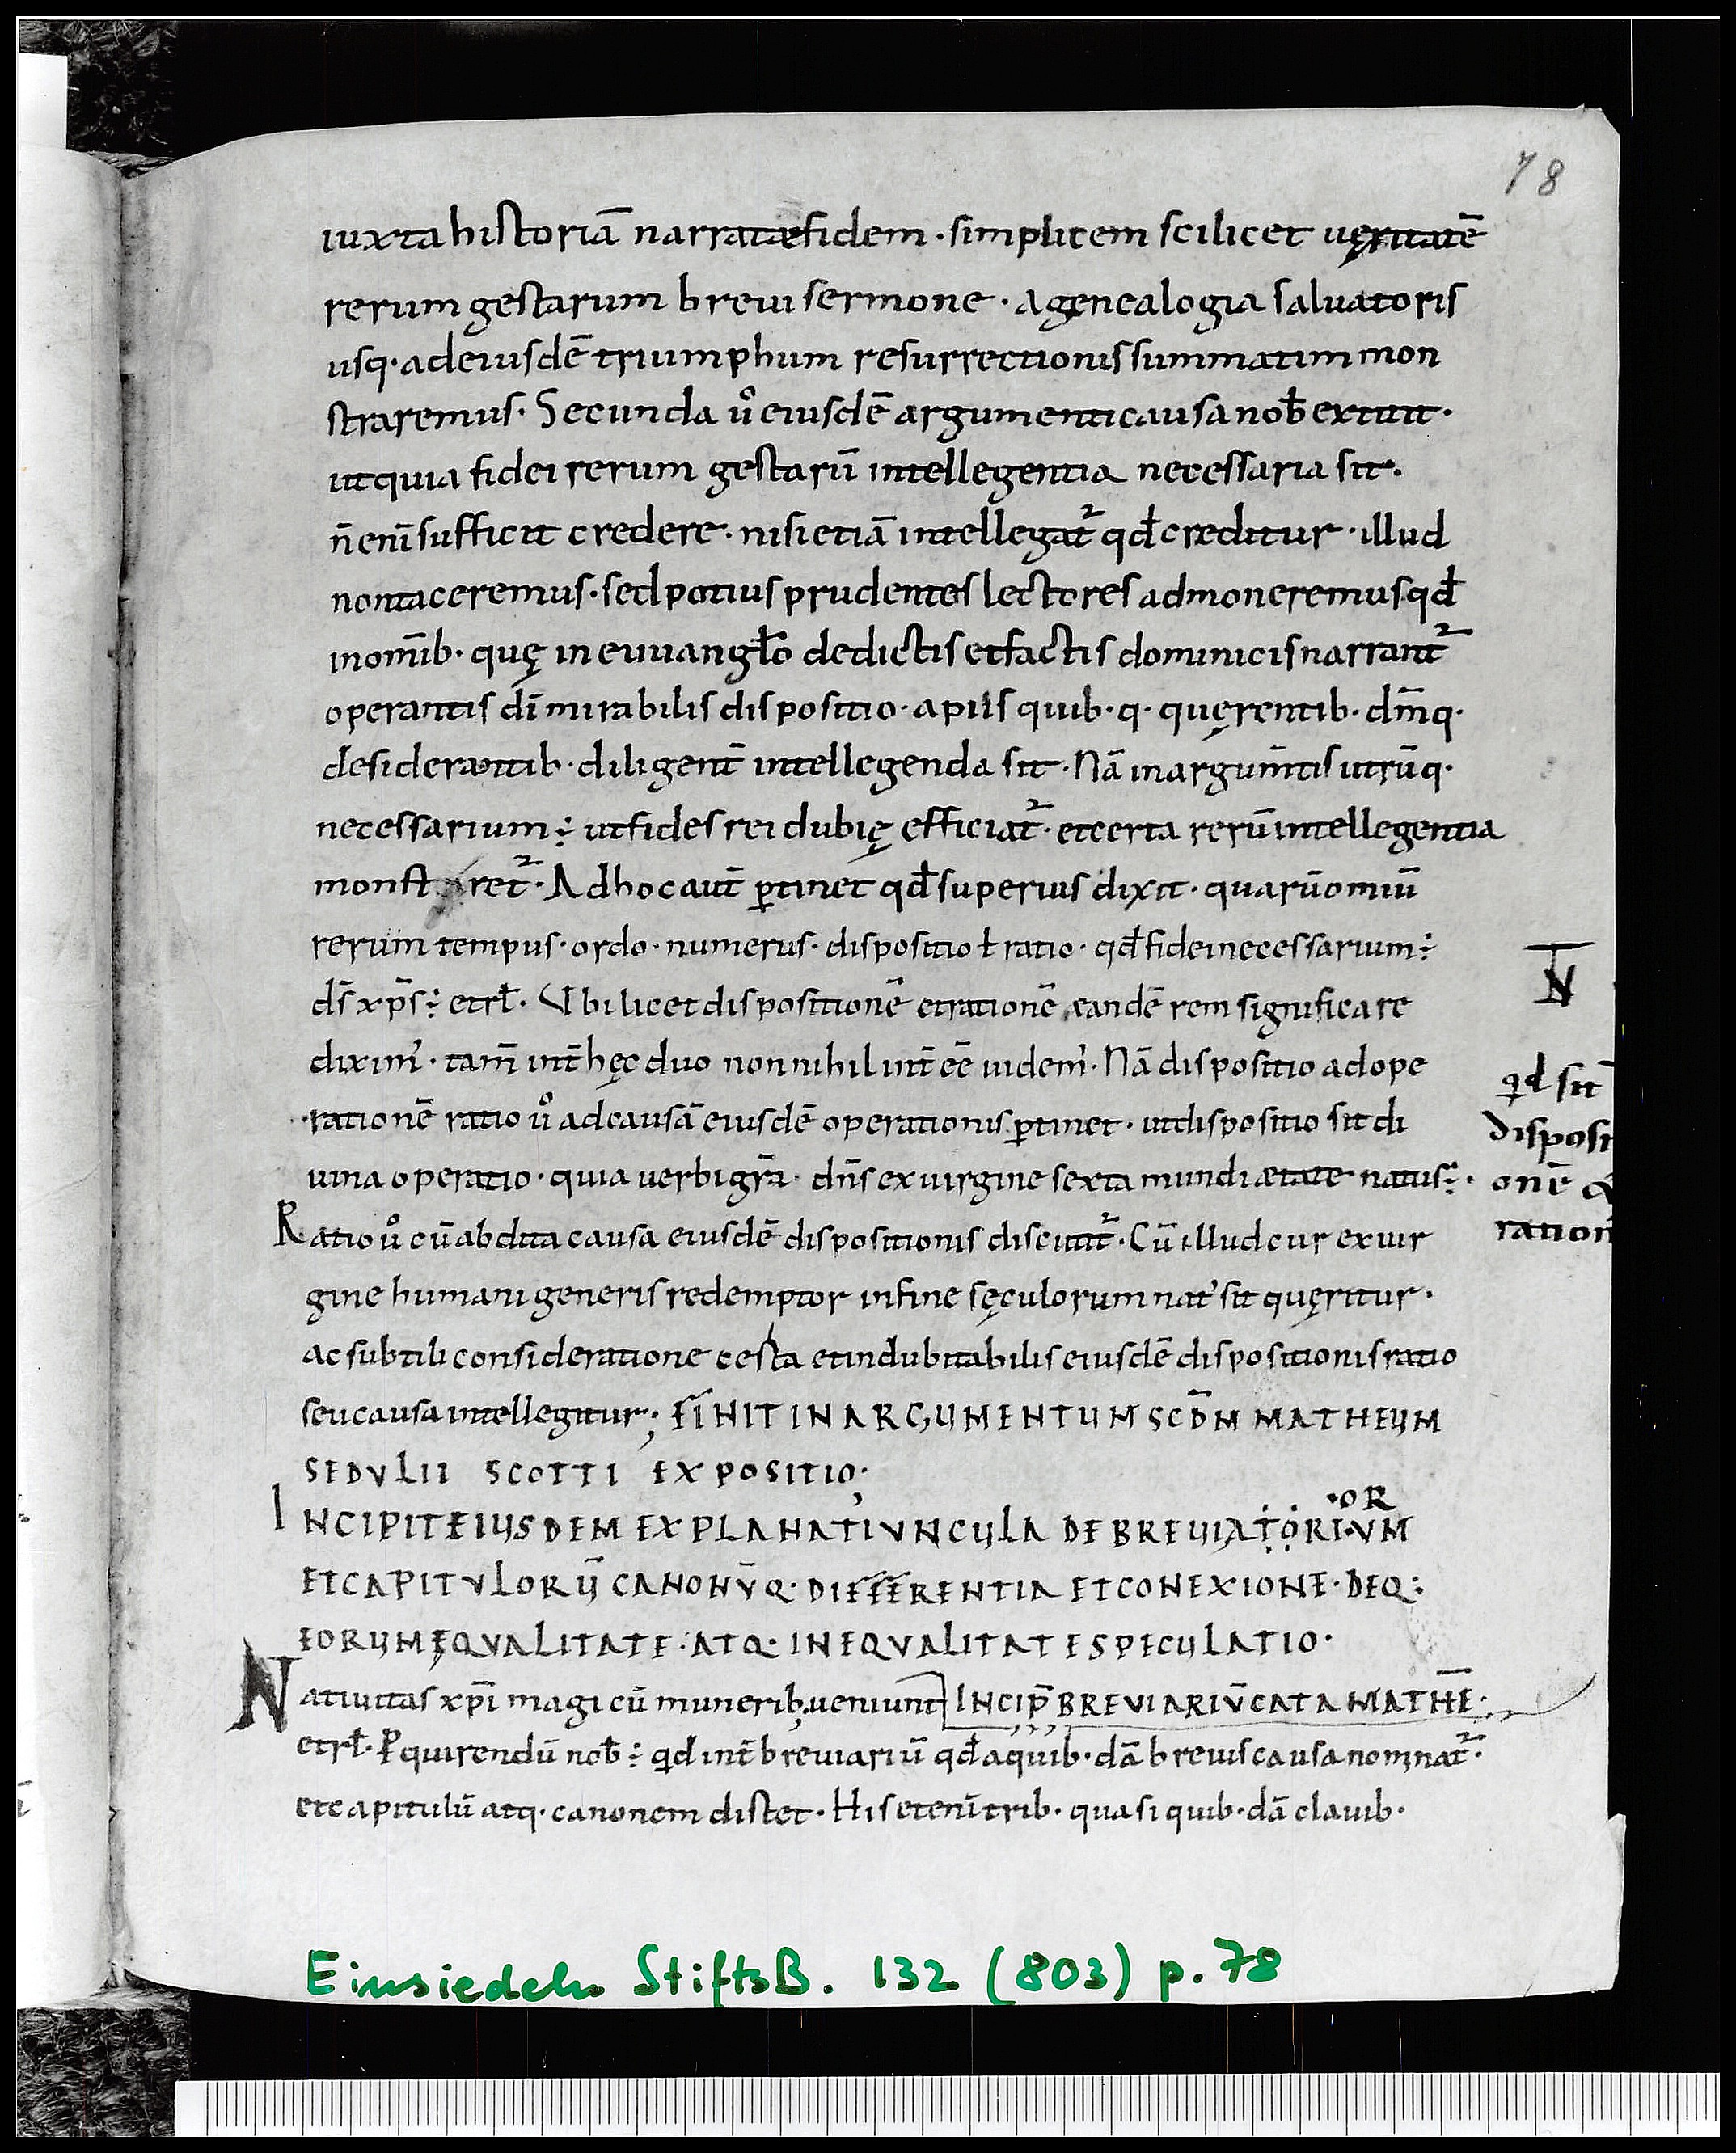 78
iuxta historiā narratæ fidem · simplicem scilicet uęritatē
rerum gestarum breui sermone · a genealogia saluatoris
usq· ad eiusdē triumphum resurrectionis summatim mon
straremus · Secunda ů eiusdē argumenti causa nob̄ extitit ·
ut quia fidei rerum gestarū intellegentia necessaria sit ·
n̄ enī sufficit credere · nisi etiā intellegat᷑ qđ creditur · illud
non taceremus · sed potius prudentes lectores admoneremus qđ
in om̄ib· quę in euuangło de dictis et factis dominicis narrant᷑
operantis dī mirabilis dispositio · a piis quib· q· quęrentib· dm̄q·
desiderantib· diligent̄ intellegenda sit · Nā in argum̄tis utrūq·
necessarium ; ut fides rei dubię efficiat᷑ · et certa rerū intellegentia
monst ret᷑ · Ad hoc aut̄ ꝑtinet qđ superius dixit · quarū omiū
rerum tempus · ordo · numerus · dispositio ł ratio · qđ fidei necessarium ;
ds̄ xp̄s ; et rł · Vbi licet dispositionē et rationē eandē rem significare
dixim' · tam̄ int̄ hęc duo non nihil int̄ēē uidem' · Nā dispositio ad ope
rationē ratio ů ad causā eiusdē operationis ꝑtinet · ut dispositio sit di
uina operatio · quia uerbi gr̄a · dn̄s ex uirgine sexta mundi ætate natus ; ·
Ratio ů cū abdita causa eiusdē dispositionis discutit᷑ · Cū illud cur ex uir
gine humani generis redemptor in fine sęculorum nat' sit quęritur ·
ac subtili consideratione certa et indubitabilis eiusdē dispositionis ratio
seu causa intellegitur ; FĪNIT IN ARGUMENTUM SCD̄M MATHEUM
SEDVLII SCOTTI EXPOSITIO ;
INCIPIT EIUSDEM EXPLANATIVNCULA DE BREUIATORI·VM
·OR
ET CAPITVLORŪ CANONV̄Q· DIFFERENTIA ET CONEXIONE · DEQ:
EORUM ĘQVALITATE · ATQ· INEQVALITATE SPECULATIO ·
Natiuitas xp̄i magi cū munerib; ueniunt INCIP̄ BREVIARIV̄ CATA MATHE̅ ·
et rł · Pquirendū nob̄ ; qd int̄ breuiariū qđ a quib· dā breuis causa nominat᷑ ·
et capitulū atq· canonem distet · His etenī trib· quasi quib· dā clauib·
N̄
qd sit
disposi
onē &
ration
Einsiedeln StiftsB. 132 (803) p. 78